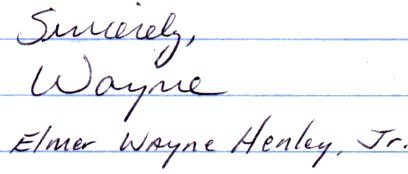 Sincerely,
Wayne
Elmer Wayne Henley, Jr.